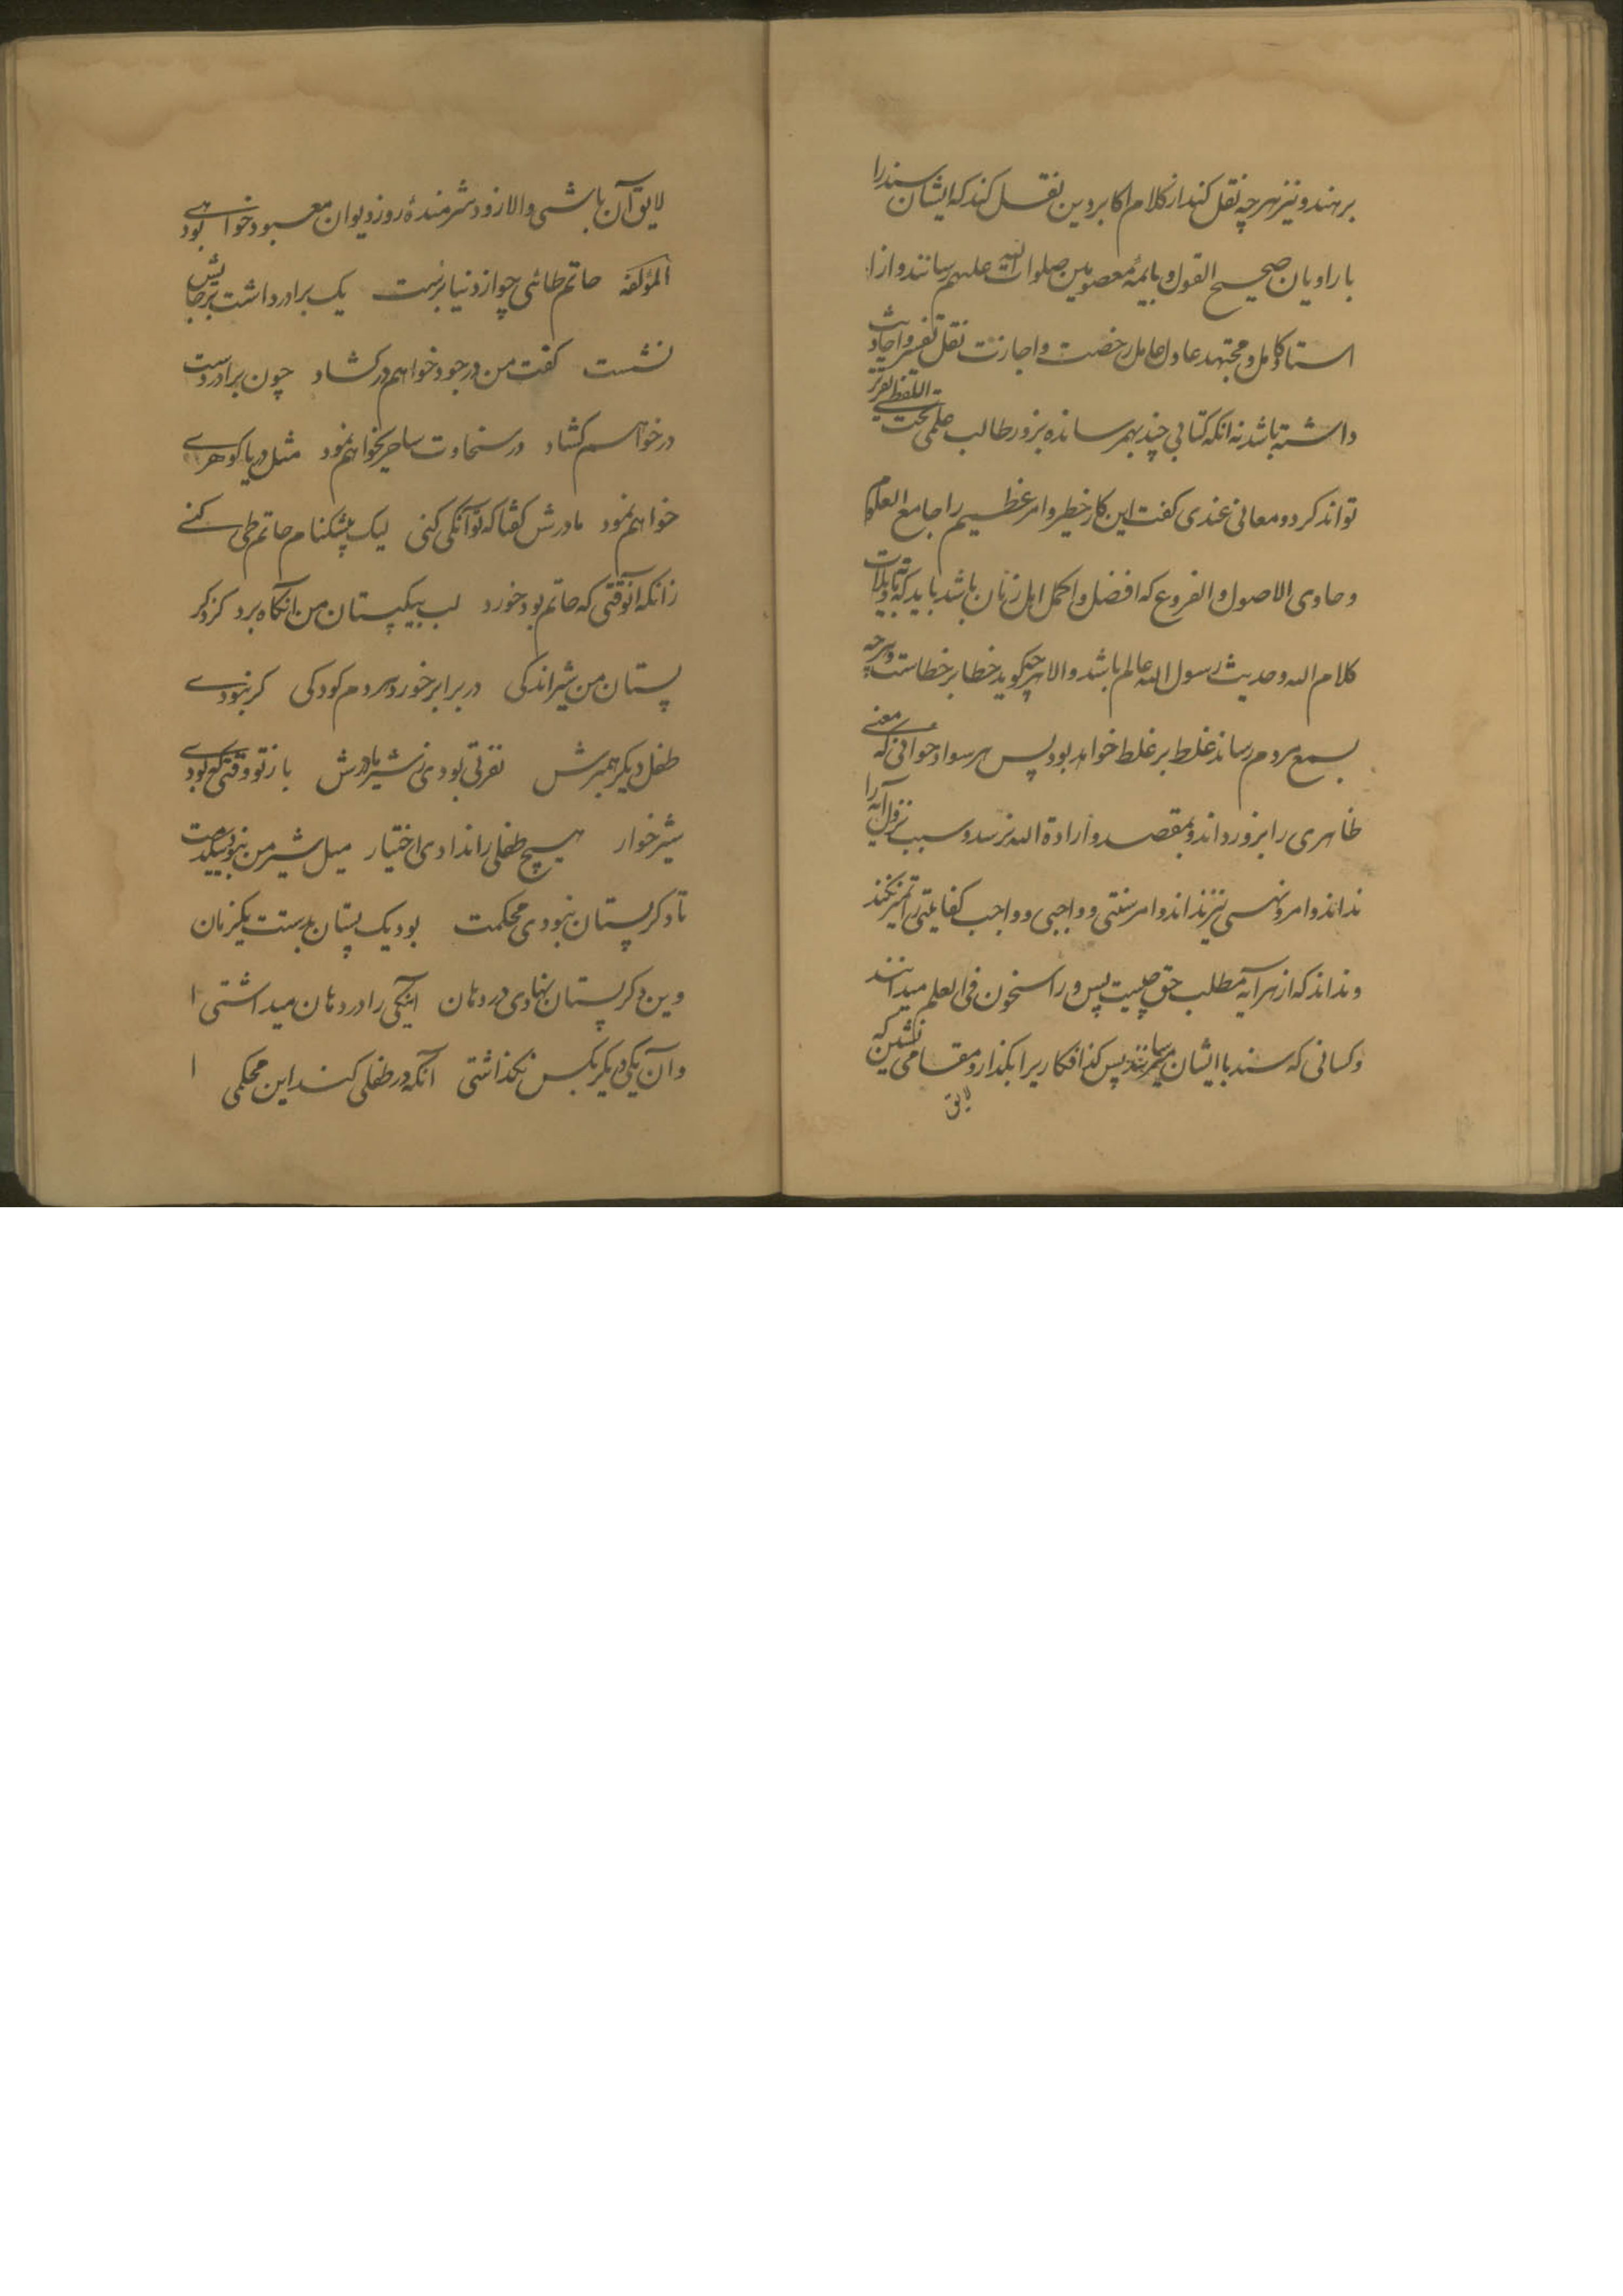 برهند و نیز هرچه نقل کند از کلام اکابر دین نقل کند که ایشان سند را
با راویان صحیح القول و بایمهٔ معصومین صلوات الله علیهم رسانند و از
استاد کامل و مجتهد عادل عامل رخصت و اجازت نقل تفسیر و احادیث
داشته باشد نه انکه کتابی چند بهم رسانده بزور طالب علمی تحت اللفظی تقریر
تواند کرد و معانی عندی کفت این کار خطیر و امر عظیم را جامع العلوم
و حاوی الاصول و الفروع که افضل و اکمل اهل زمان باشد باید که به تاویلات
کلام الله و حدیث رسول الله عالم باشد و الا هرچه کوید خطا بر خطاست و هرچه
بسمع مردم رساند غلط بر غلط خواهد بود پس هر سواد خوانی که معنی
ظاهری را بزور داند و بمقصد و ارادة الله نرسد و سبب نزول آیه را
نداند و امر و نهی نیز نداند و امر سنتی و واجبی و واجب کفایتی را تمیز نکند
و نداند که از هر آیه مطلب حق چیست پس و راسخون فی العلم میدانند
و کسانی که سند با ایشان میرسانند پس کذا فکار یرا بکذار و مقامی نشین که
لایق
لایق آن باشی و الا زود شرمندهٔ روز دیوان معبود خواهی بود
لمؤلفه حاتم طائی چو از دنیا برست یک برادر داشت بر جایش
نشست کفت من در جود خواهم در کشاد چون برادر دست
در خواهم کشاد در سخاوت ساحری خواهم نمود مثل دریا کوهری
خواهم نمود مادرش کفتا که تو آنکی کنی لیک پیش نام حاتم طی کنی
زانکه آنوقتی که حاتم بود خورد لب بیک پستان من انکاه برد کز دکر
پستان من شیر اندکی در برابر خورد هر دم کودکی کر نبودی
طفل دیکر همبرش نفرتی بودی ز شیر مادرش باز تو وقتی که بودی
شیرخوار هیچ طفلی را ندادی اختیار میل شیر من نبودی یکدمت
تا دکر پستان نبودی محکمت بود یک پستان بدستت یکزمان
وین دکر پستان نهادی در دهان اینکی را در دهان میداشتی
و آن یکی دیکر بکس نکذاشتی آنکه در طفلی کند این محکمی